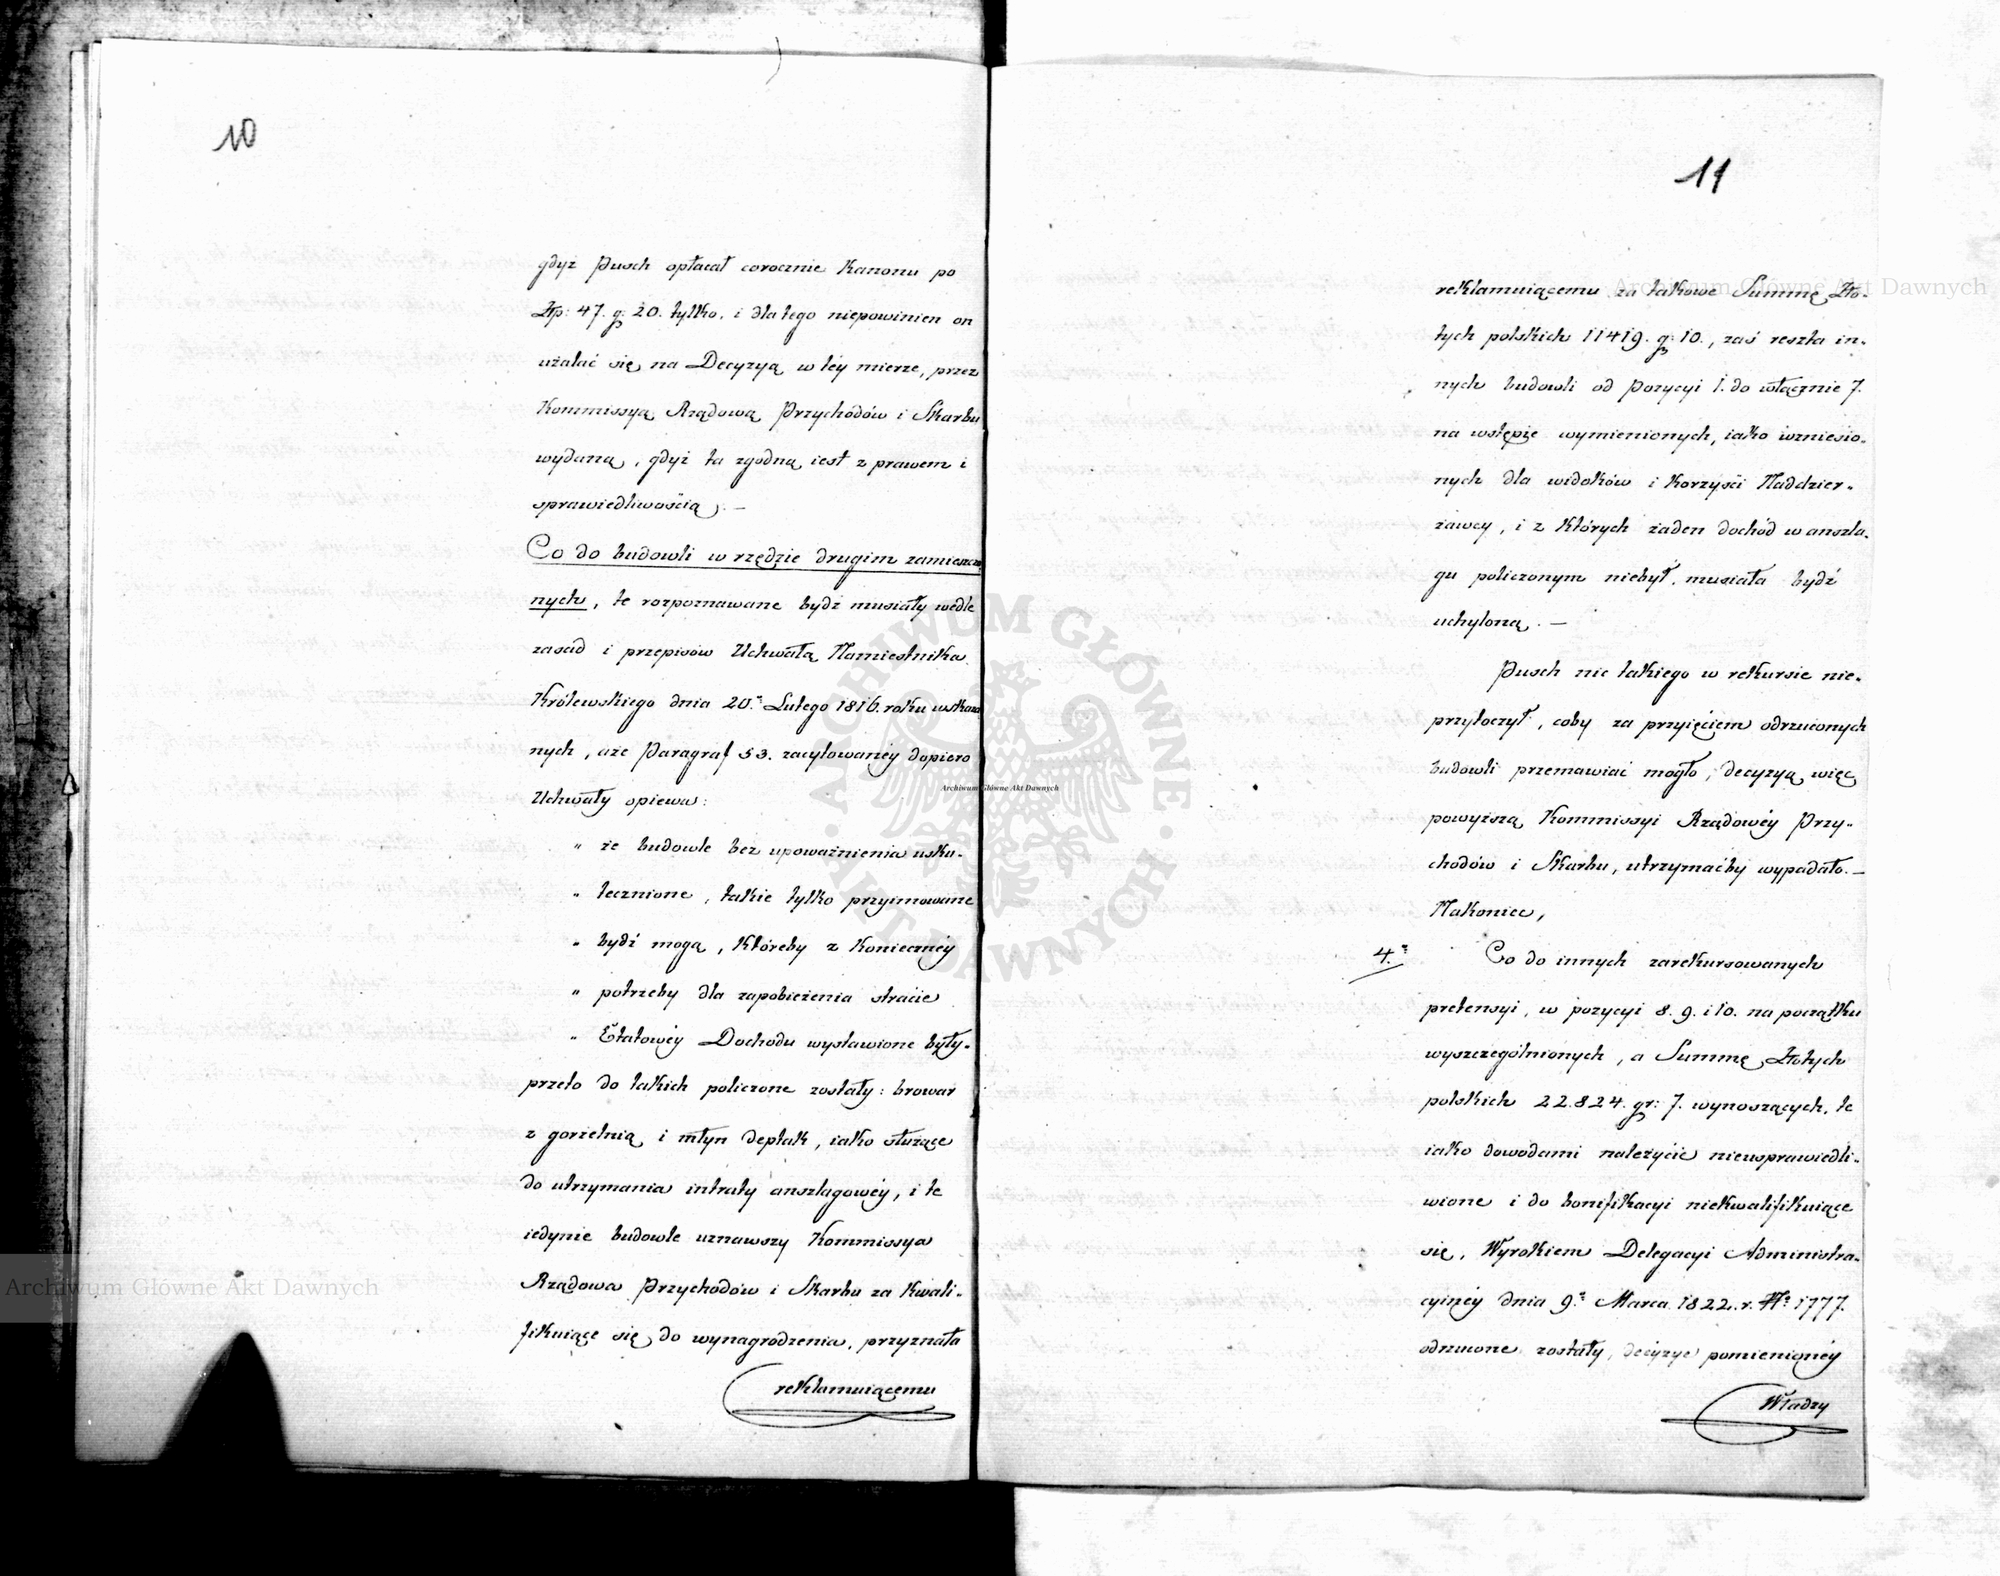 10
gdyż Pusch opłacał corocznie Kanonu po
Złp: 47. g: 20. tylko, i dla tego niepowinien on
użalać się na Decyzyą w téy mierze, przez
Kommissyą Rządową Przychodów i Skarbu
wydaną, gdyż ta zgodną iest z prawem i
sprawiedliwością. —
Co do budowli w rzędzie drugim zamieszczo
nych, te rozpoznawane bydź musiały wedle
zasad i przepisów Uchwałą Namiestnika
Królewskiego dnia 20. Lutego 1816. roku wskaza
nych, aże Paragraf 53. zacytowanéy dopiero
Uchwały opiewa:
" że budowle bez upoważnienia usku-
" tecznione, takie tylko przyimowane
" bydź mogą, któreby z koniecznéy
" potrzeby dla zapobieżenia stracie
" Etatowéy Dochodu wystawione były.
przeto do takich policzone zostały: browar
z gorzelnią i młyn deptak, iako służące
do utrzymania intraty anszlagowéy, i te
iedynie budowle uznawszy Kommissya
Rządowa Przychodów i Skarbu za kwali-
fikuiące się do wynagrodzenia, przyznała
reklamuiącemu
11
reklamuiącemu za takowe Summę Zło-
tych polskich 11419. g: 10., zaś reszta in-
nych budowli od Pozycyi 1. do włącznie 7.
na wstępie wymienionych, iako wzniesio-
nych dla widoków i korzyści Naddzier-
żawcy, i z których żaden dochód w anszla-
gu policzonym niebył, musiała bydź
uchyloną. —
Pusch nic takiego w rekursie nie-
przytoczył, coby za przyięciem odrzuconych
budowli przemawiać mogło, decyzyą więc
powyższą Kommissyi Rządowéy Przy-
chodów i Skarbu, utrzymaćby wypadało. —
Nakoniec,
4. Co do innych zarekursowanych
pretensyi, w pozycyi 8. 9. i 10. na początku
wyszczególnionych, a Summę Złotych
polskich 22.824. gr: 7. wynoszących, te
iako dowodami należycie nieusprawiedli-
wione i do bonifikacyi niekwalifikuiące
się, Wyrokiem Delegacyi Administra-
cyinéy dnia 9. Marca 1822. r. No 1777.
odrzucone zostały, decyzye pomienionéy
Władzy
Archiwum Główne Akt Dawnych
Archiwum Główne Akt Dawnych
Archiwum Główne Akt Dawnych
ARCHIWUM GŁÓWNE AKT DAWNYCH